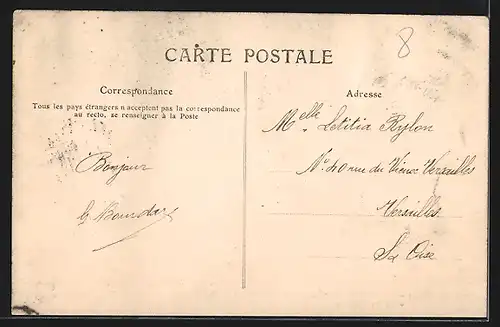 8
CARTE POSTALE
Correspondance
Tous les pays étrangers n'acceptent pas la correspondance
au recto, se renseigner à la Poste
Bonjour
Adresse
Melle Letitia Rylon
No 40 rue du Vieux Versailles
Versailles
S et Oise